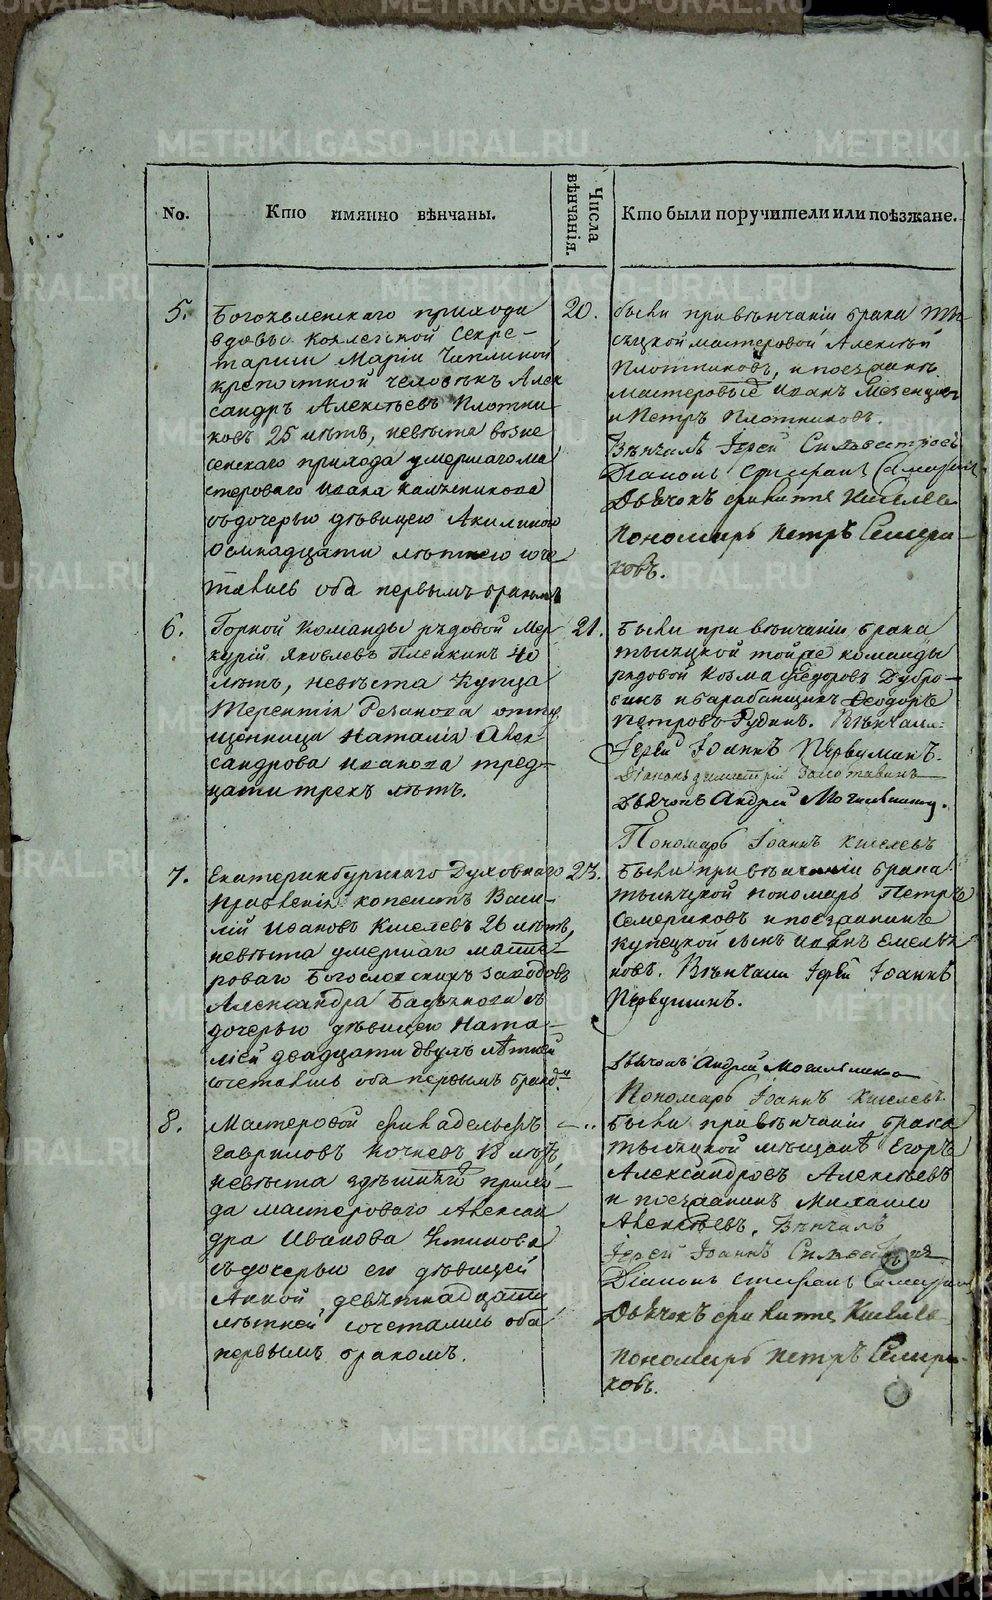 METRIKI.GASO-URAL.RU
No.
Кто имянно вѣнчаны.
Числа вѣнчанія.
Кто были поручители или поѣзжане.
5.
Богоявленскаго прихода
вдовы Коллежской Секре-
тарши Маріи Чаплиной
крепостной человѣкъ Алек
сандръ Алексѣевъ Плотни-
ковъ 25 лѣтъ, невѣста возне
сенскаго прихода умершаго ма
стероваго Ивана
съ дочерью дѣвицею Акилиною
осмнадцати лѣтнею соче
тались оба первымъ бракомъ
20.
были при вѣнчаніи брака
мастеровой Алексѣй
Плотниковъ, и поезжанъ
мастеровые Иванъ
и Петръ Плотниковъ.
Вѣнчалъ Іерей
Діаконъ Стефанъ
Дьячокъ Киселев
пономарь петръ Семери-
ковъ.
6.
Горной Команды рядовой Мер
курій Яковлевъ 40
лѣтъ, невѣста Купца
Терентія Резанова отпу
щенница Наталія Алек
сандрова Иванова трид-
цати трехъ лѣтъ.
21.
Были при вѣнчаніи брака
тысяцкой той же команды
рядовой Козма Федоровъ Дубро-
винъ и барабанщикъ Феодоръ
Петровъ Рудинъ. Вѣнчали:
Іерей Іоаннъ Первушинъ.
Діаконъ Димитрій
Дьячокъ Андрей
Пономарь Іоаннъ Киселевъ
7.
Екатеринбургскаго Духовнаго
правленія копеистъ Васи-
лій Ивановъ Киселевъ 26 лѣтъ,
невѣста умершаго масте-
роваго Богословскихъ заводовъ
Александра съ
дочерью дѣвицею Ната-
ліей двадцати двухъ лѣтней
сочетались оба первымъ бракомъ
23.
Были при вѣнчаніи брака
тысяцкой пономарь Петръ
Семериковъ и поезжанинъ
купецкой сынъ Иванъ Емелья
новъ. Вѣнчали Іерей Іоаннъ
Первушинъ.
Дьячокъ Андрей
Пономарь Іоаннъ Киселевъ.
8.
Мастеровой Финадельфъ
Гавриловъ Кочневъ 18 лѣтъ,
невѣста здѣшняго прихо-
да мастероваго Алексан
дра Иванова
съ дочерью его дѣвицей
Анной, девѣтнадцати
лѣтней сочетались оба
первымъ бракомъ.
— ..
Были при вѣнчаніи брака
тысяцкой мѣщанъ Егоръ
Александровъ Алексѣевъ
и поезжанинъ Михаило
Алексѣевъ. Вѣнчалъ
Іерей Іоаннъ
Діаконъ Стефанъ
Дьячокъ Киселев
пономарь петръ Семери-
ковъ.